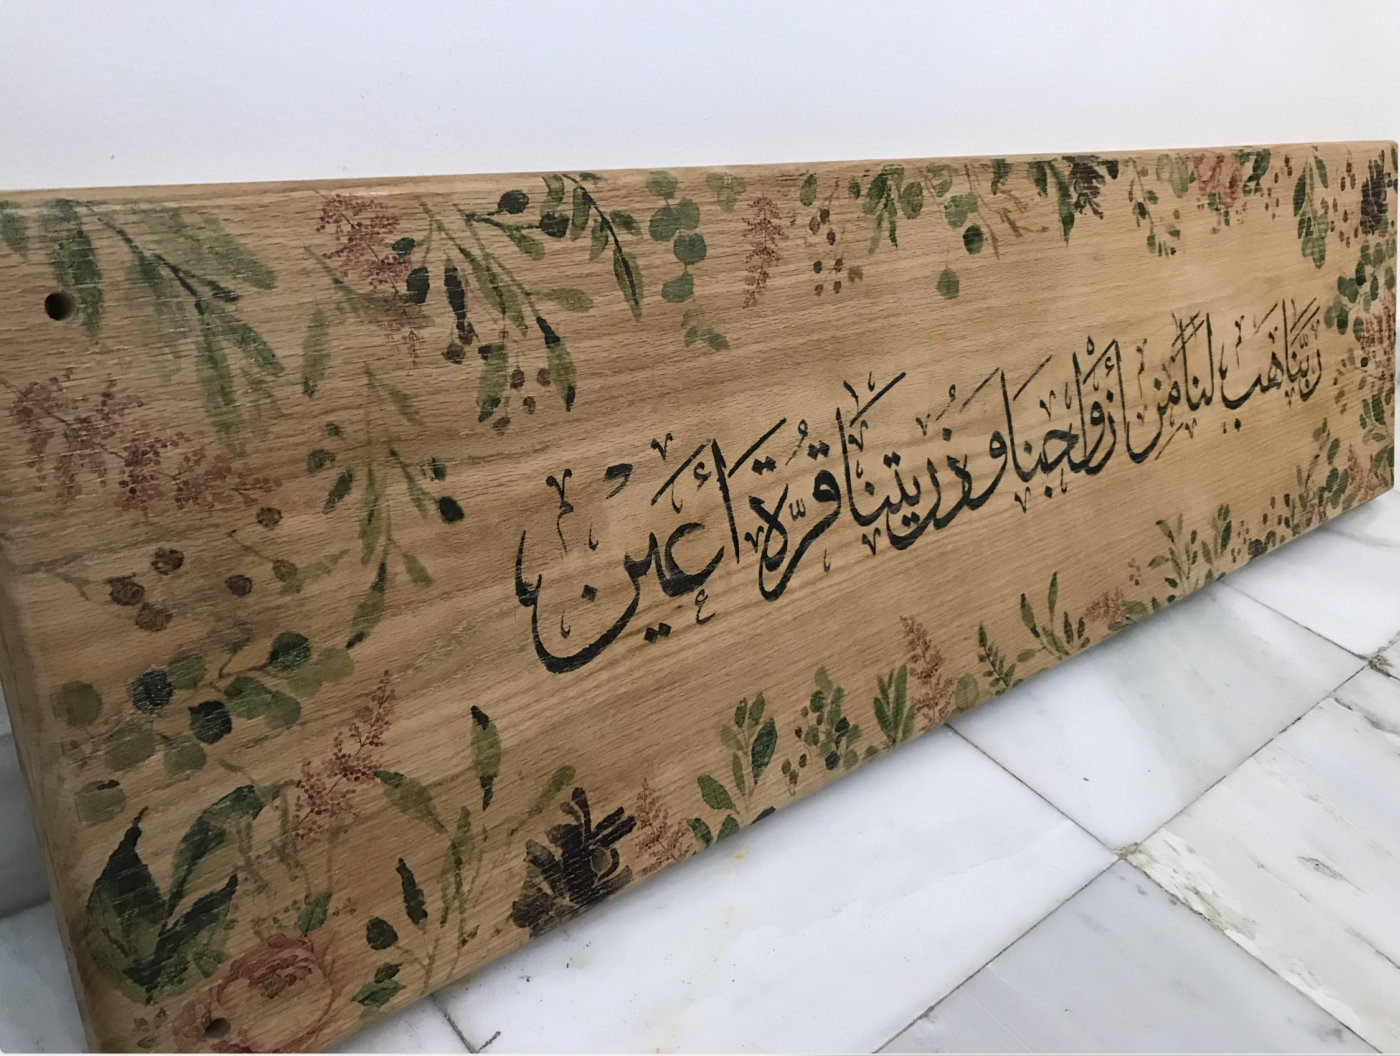 ربنا هب لنا من أزواجنا وذريتنا قرة أعين